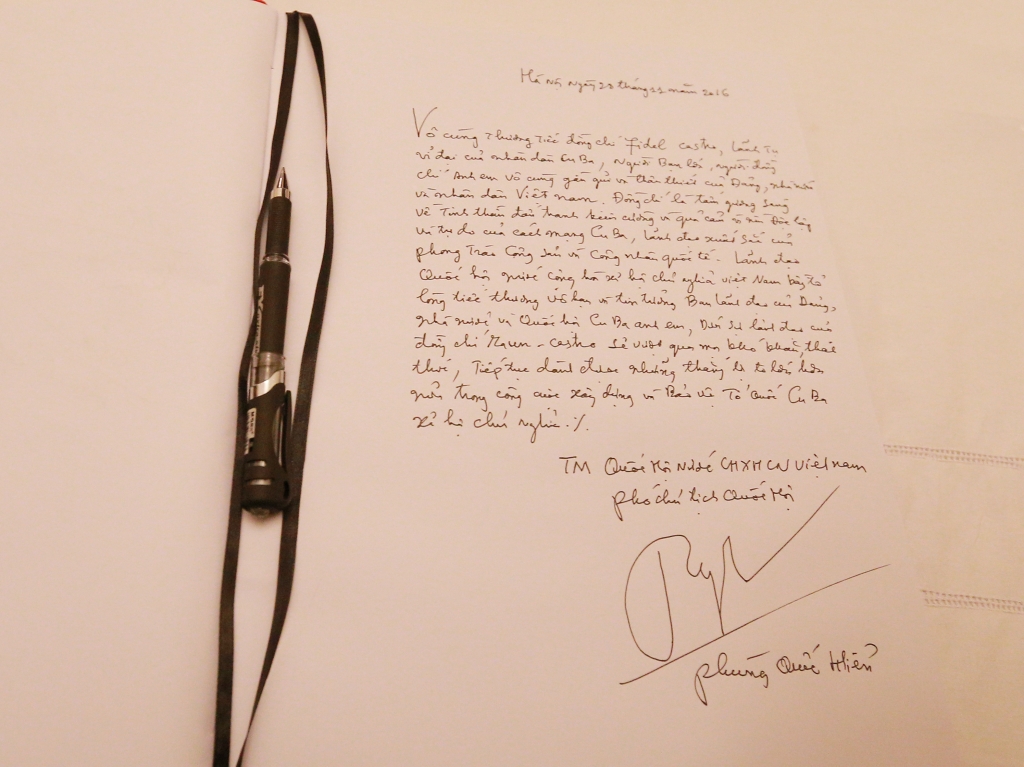 Hà Nội Ngày 28 tháng 11 năm 2016
Vô cùng thương tiếc đồng chí Fidel Castro, lãnh tụ
vĩ đại của nhân dân Cu Ba, người Bạn lớn, người đồng
chí Anh em vô cùng gần gũi và thân thiết của Đảng, nhà nước
và nhân dân Việt nam. Đồng chí là tấm gương sáng
về Tinh thần đấu tranh kiên cường và quả cảm vì nền Độc lập
và tự do của cách mạng Cu Ba, lãnh đạo xuất sắc của
phong Trào Cộng sản và Công nhân quốc tế. Lãnh đạo
Quốc hội nước cộng hòa xã hội chủ nghĩa việt Nam bày tỏ
lòng tiếc thương vô hạn và tin tưởng Ban lãnh đạo của Đảng,
nhà nước và Quốc hội Cu Ba anh em, Dưới sự lãnh đạo của
đồng chí - Castro sẽ vượt qua mọi khó khăn, thách
thức, Tiếp tục dành được những thắng lợi to lớn hơn
nữa trong công cuộc xây dựng và Bảo vệ Tổ Quốc Cu Ba
xã hội chủ nghĩa ./.
TM Quốc Hội Nước CHXHCN Việt nam
phó chủ tịch Quốc Hội
phùng Quốc Hiển